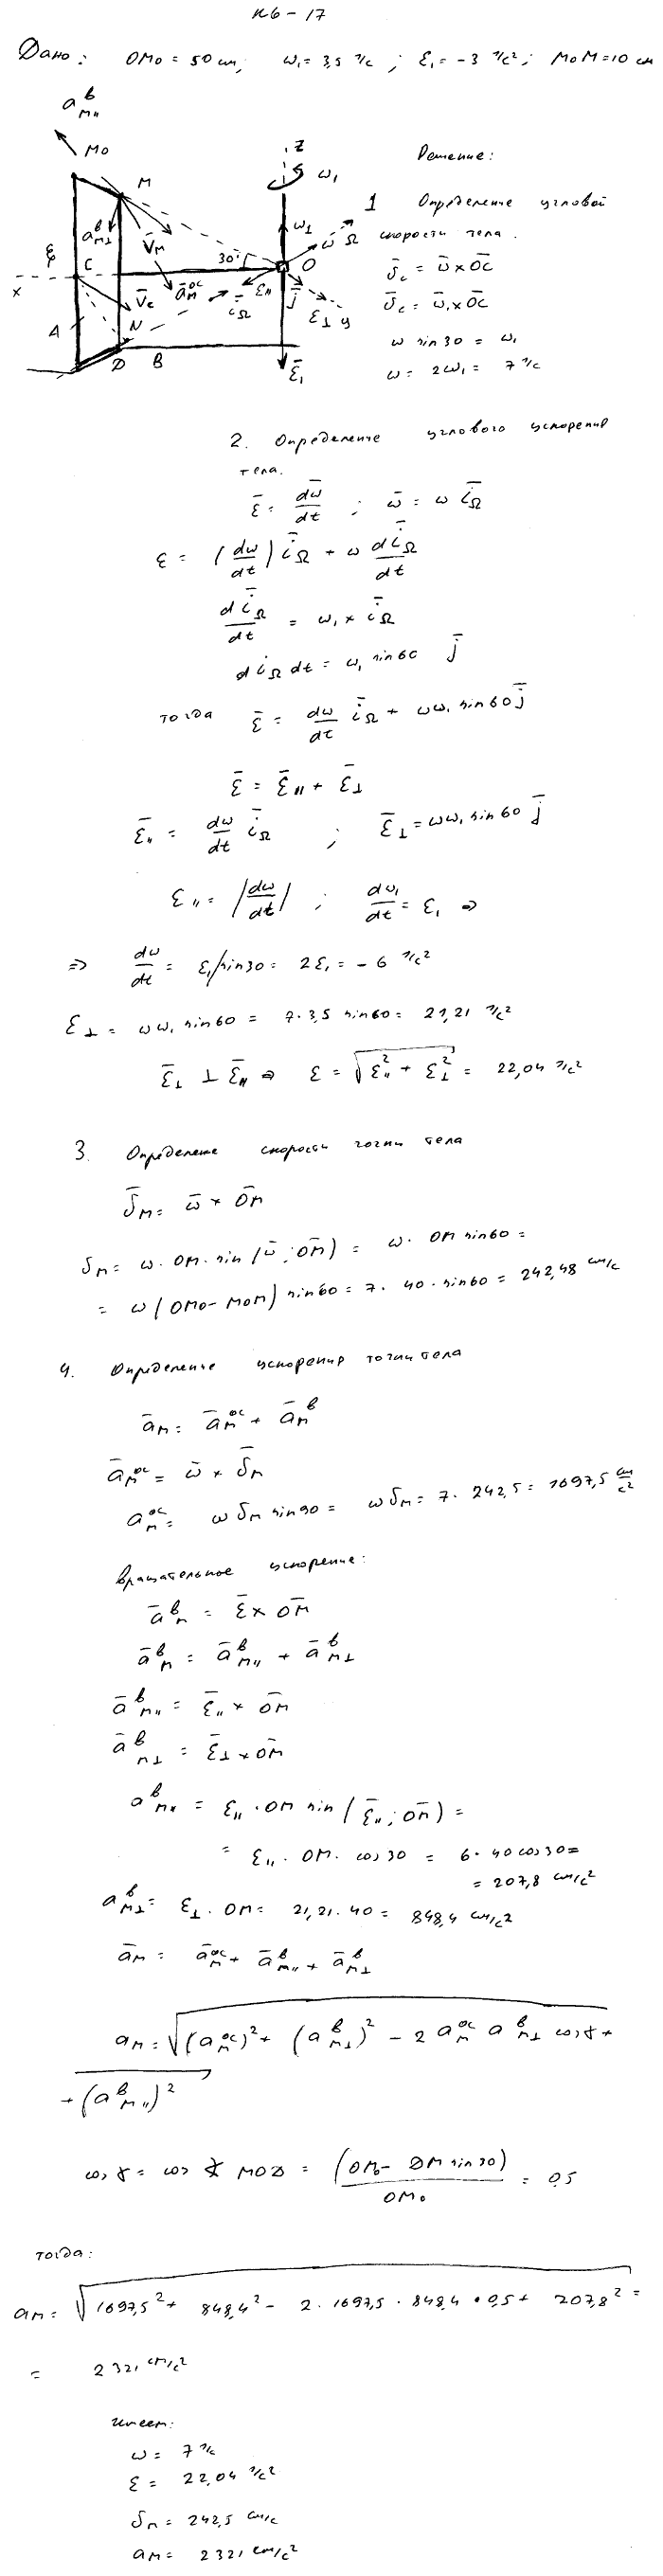 К6-17
Дано: OM₀ = 50 см; ω₁ = 3,5 ¹/с; ε₁ = -3 ¹/с²; M₀M = 10 см
Решение:
1 Определение угловой скорости тела.
v̄c = ω̄ × O̅C̅
v̄c = ω̄₁ × O̅C̅
ω sin 30 = ω₁
ω = 2ω₁ = 7 ¹/с
a̅ᴮ_M∥
M₀
M
z
ω₁
a̅ᴮ_M⊥
V̄_M
30°
ω⊥
ω
Ω
C
O
x
V̄c
a̅ᵒᶜ_M
ε∥
j̄
i̅_Ω
ε⊥
y
A
N
D
B
ε̄₁
2. Определение углового ускорения
тела.
ε̄ = dω̄/dt ; ω̄ = ω i̅_Ω
ε = (dω/dt) i̅_Ω + ω di̅_Ω/dt
di̅_Ω/dt = ω₁ × i̅_Ω
di_Ω dt = ω₁ sin 60 j̄
тогда ε̄ = dω/dt i̅_Ω + ωω₁ sin 60 j̄
ε̄ = ε̄∥ + ε̄⊥
ε̄∥ = dω/dt i̅_Ω ; ε̄⊥ = ωω₁ sin 60 j̄
ε∥ = |dω/dt| ; dω₁/dt = ε₁ ⇒
⇒ dω/dt = ε₁/sin 30 = 2ε₁ = -6 ¹/с²
ε⊥ = ωω₁ sin 60 = 7·3,5 sin 60 = 21,21 ¹/с²
ε̄⊥ ⊥ ε̄∥ ⇒ ε = √(ε∥² + ε⊥²) = 22,04 ¹/с²
3. Определение скорости точки тела
v̄_M = ω̄ × O̅M̅
v_M = ω·OM·sin(ω̄; O̅M̅) = ω·OM sin 60 =
= ω(OM₀ - M₀M) sin 60 = 7·40·sin 60 = 242,48 см/с
4. Определение ускорения точки тела
a̅_M = a̅ᵒᶜ_M + a̅ᴮ_M
a̅ᵒᶜ_M = ω̄ × v̄_M
aᵒᶜ_M = ω v_M sin 90 = ω v_M = 7·242,5 = 1697,5 см/с²
вращательное ускорение:
a̅ᴮ_M = ε̄ × O̅M̅
a̅ᴮ_M = a̅ᴮ_M∥ + a̅ᴮ_M⊥
a̅ᴮ_M∥ = ε̄∥ × O̅M̅
a̅ᴮ_M⊥ = ε̄⊥ × O̅M̅
aᴮ_M∥ = ε∥·OM sin(ε̄∥; O̅M̅) =
= ε∥·OM·cos 30 = 6·40 cos 30 =
= 207,8 см/с²
aᴮ_M⊥ = ε⊥·OM = 21,21·40 = 848,4 см/с²
a̅_M = a̅ᵒᶜ_M + a̅ᴮ_M∥ + a̅ᴮ_M⊥
a_M = √((aᵒᶜ_M)² + (aᴮ_M⊥)² - 2 aᵒᶜ_M aᴮ_M⊥ cos γ +
+ (aᴮ_M∥)²
cos γ = cos ∡ MOD = (OM₀ - DM sin 30)/OM₀ = 0,5
тогда:
a_M = √(1697,5² + 848,4² - 2·1697,5·848,4·0,5 + 207,8² =
= 2321 см/с²
имеем:
ω = 7 ¹/с
ε = 22,04 ¹/с²
v_M = 242,5 см/с
a_M = 2321 см/с²